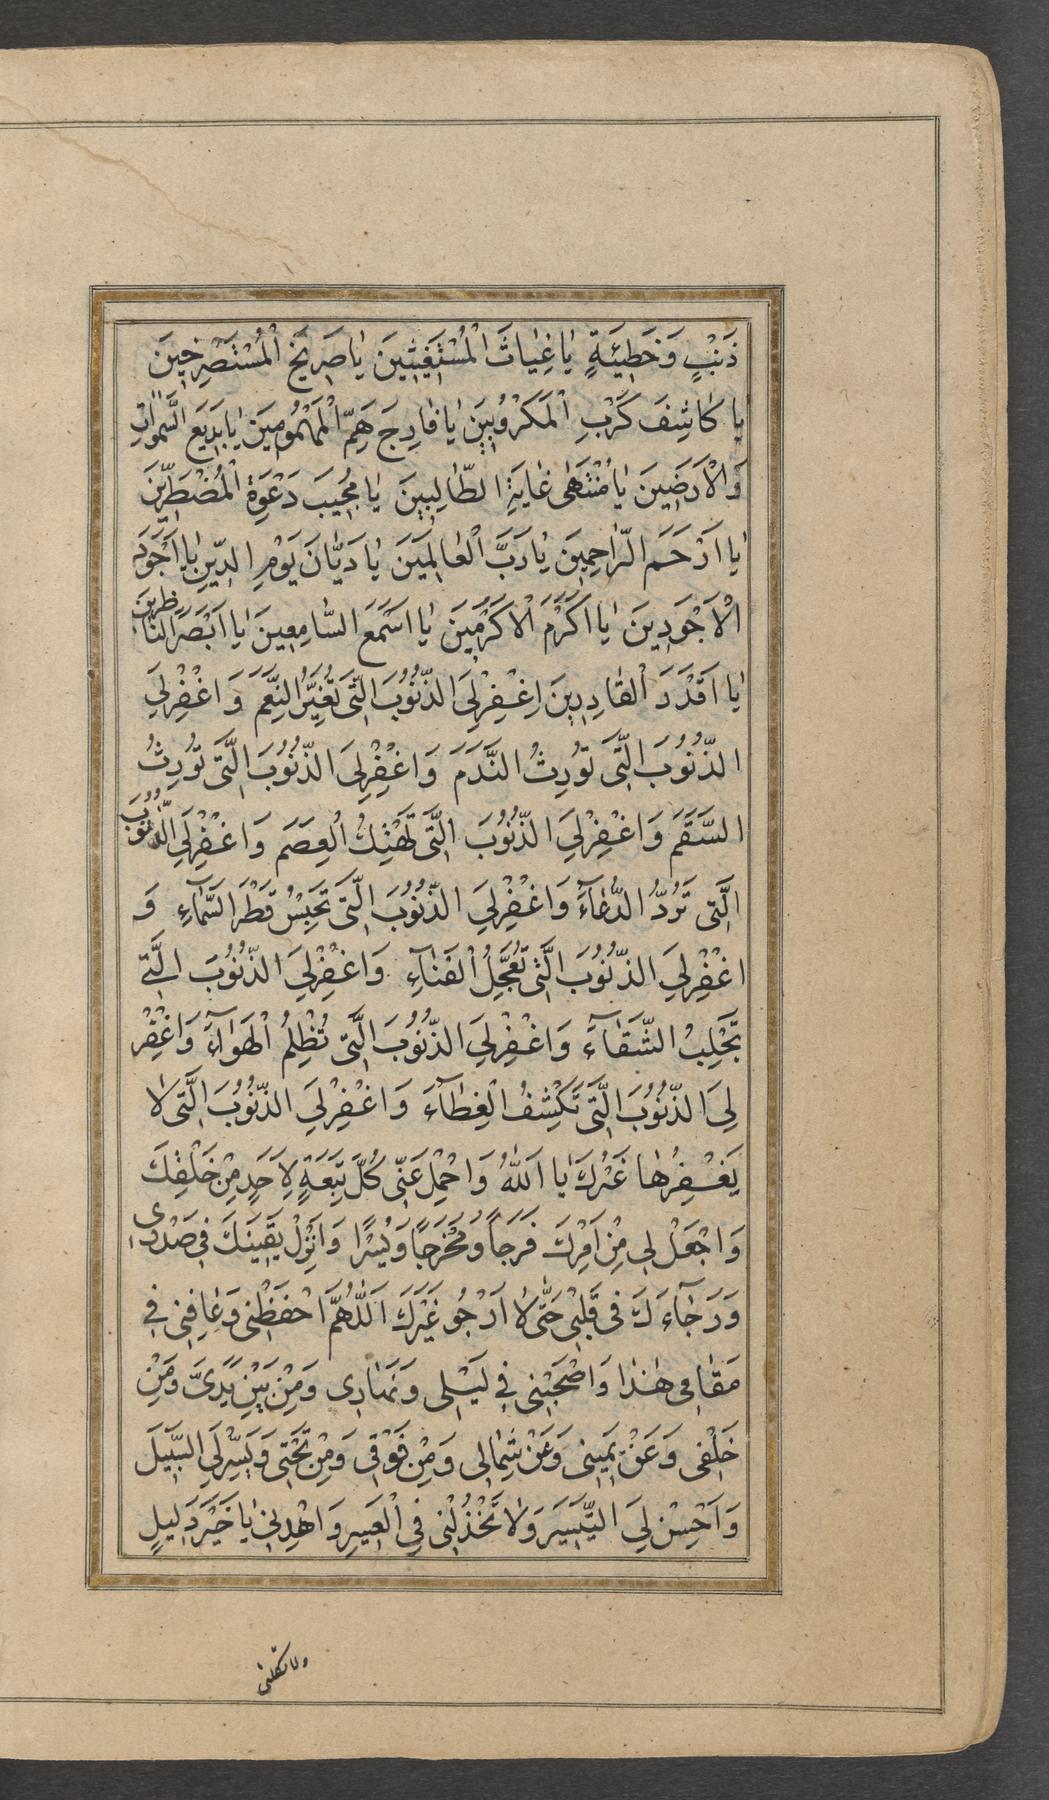 ذَنْبٍ وَخَطِيئَةٍ يَا غِيَاثَ الْمُسْتَغِيثِينَ يَا صَرِيخَ الْمُسْتَصْرِخِينَ
يَا كَاشِفَ كَرْبِ الْمَكْرُوبِينَ يَا فَارِجَ هَمِّ الْمَهْمُومِينَ يَا بَدِيعَ السَّمٰوَاتِ
وَالْاَرَضِينَ يَا مُنْتَهَى غَايَةِ الطَّالِبِينَ يَا مُجِيبَ دَعْوَةِ الْمُضْطَرِّينَ
يَا اَرْحَمَ الرَّاحِمِينَ يَا رَبَّ الْعَالَمِينَ يَا دَيَّانَ يَوْمِ الدِّينِ يَا اَجْوَدَ
الْاَجْوَدِينَ يَا اَكْرَمَ الْاَكْرَمِينَ يَا اَسْمَعَ السَّامِعِينَ يَا اَبْصَرَ النَّاظِرِينَ
يَا اَقْدَرَ الْقَادِرِينَ اِغْفِرْ لِيَ الذُّنُوبَ الَّتِي تُغَيِّرُ النِّعَمَ وَ اغْفِرْ لِيَ
الذُّنُوبَ الَّتِي تُورِثُ النَّدَمَ وَ اغْفِرْ لِيَ الذُّنُوبَ الَّتِي تُورِثُ
السَّقَمَ وَ اغْفِرْ لِيَ الذُّنُوبَ الَّتِي تَهْتِكُ الْعِصَمَ وَ اغْفِرْ لِيَ الذُّنُوبَ
الَّتِي تَرُدُّ الدُّعَآءَ وَ اغْفِرْ لِيَ الذُّنُوبَ الَّتِي تَحْبِسُ قَطْرَ السَّمَآءِ وَ
اغْفِرْ لِيَ الذُّنُوبَ الَّتِي تُعَجِّلُ الْفَنَآءِ وَ اغْفِرْ لِيَ الذُّنُوبَ الَّتِي
تَجْلِبُ الشَّقَآءَ وَ اغْفِرْ لِيَ الذُّنُوبَ الَّتِي تُظْلِمُ الْهَوَآءَ وَ اغْفِرْ
لِيَ الذُّنُوبَ الَّتِي تَكْشِفُ الْغِطَآءَ وَ اغْفِرْ لِيَ الذُّنُوبَ الَّتِي لَا
يَغْفِرُهَا غَيْرُكَ يَا اَللهُ وَ احْمِلْ عَنِّي كُلَّ تَبِعَةٍ لِاَحَدٍ مِنْ خَلْقِكَ
وَ اجْعَلْ لِي مِنْ اَمْرِكَ فَرَجًا وَ مَخْرَجًا وَ يُسْرًا وَ اَنْزِلْ يَقِينَكَ فِي صَدْرِي
وَ رَجَآءَكَ فِي قَلْبِي حَتَّى لَا اَرْجُو غَيْرَكَ اَللّٰهُمَّ احْفَظْنِي وَ عَافِنِي فِي
مَقَامِي هٰذَا وَ اصْحَبْنِي فِي لَيْلِي وَ نَهَارِي وَ مِنْ بَيْنِ يَدَيَّ وَ مِنْ
خَلْفِي وَ عَنْ يَمِينِي وَ عَنْ شِمَالِي وَ مِنْ فَوْقِي وَ مِنْ تَحْتِي وَ يَسِّرْ لِيَ السَّبِيلَ
وَ اَحْسِنْ لِيَ التَّيْسِيرَ وَ لَا تَخْذُلْنِي فِي الْعَسِيرِ وَ اهْدِنِي يَا خَيْرَ دَلِيلٍ
ولا تكلنی